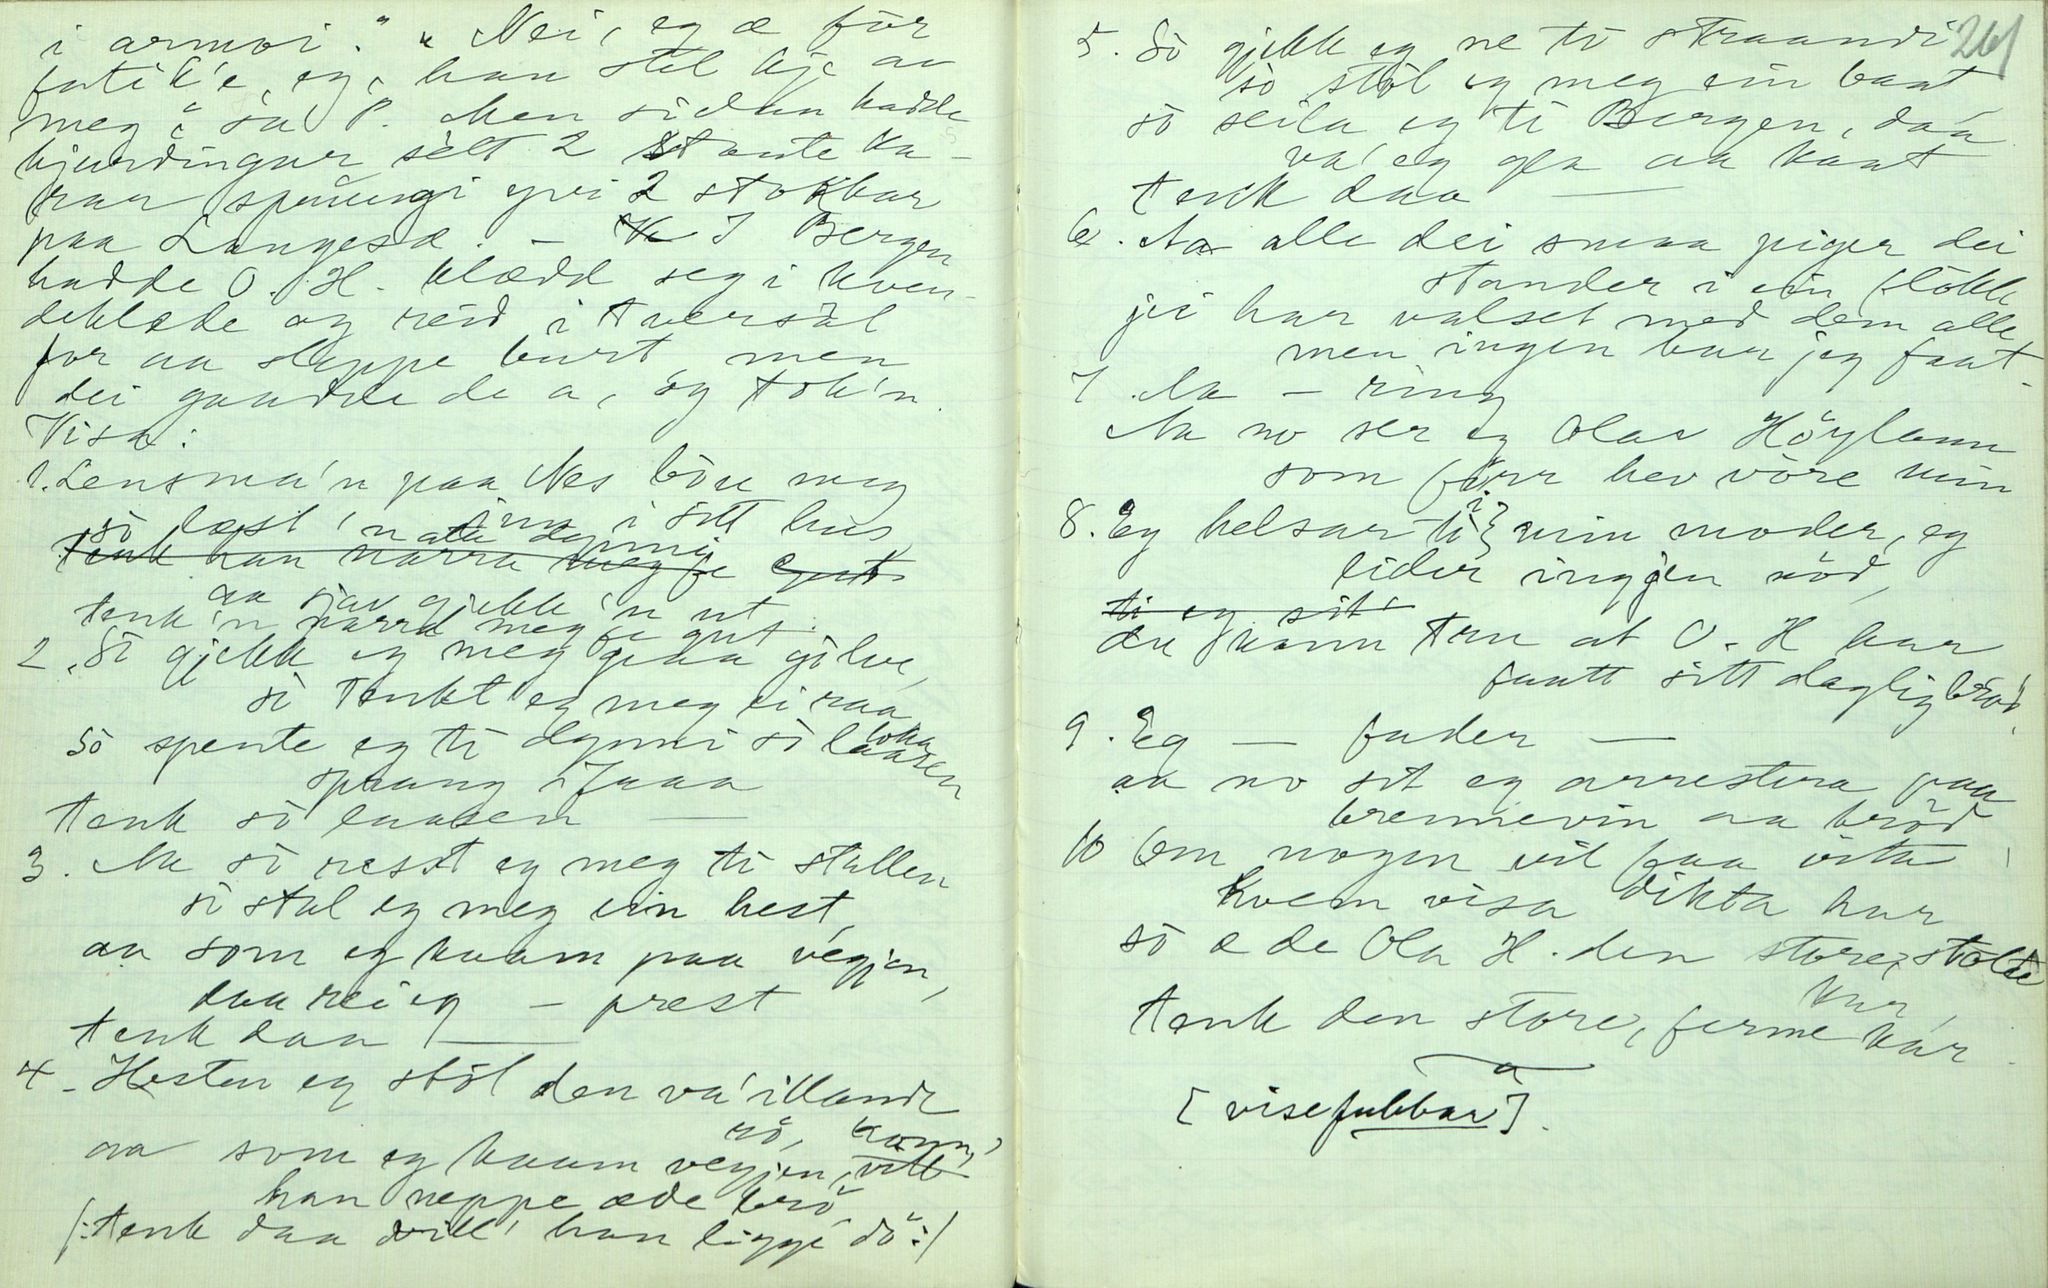 i armoi." "Nei, eg æ för
fatik'e, eg, han stel kje av
meg", sa P. Men sidan hadde
hjuringar sétt 2 stante ka-
rar springi yvi 2 stokkar
paa Langesæ. – I Bergen
hadde O. H. klædd seg i kven-
deklæde og reid i tversal
for aa sleppe burt men
dei gaadde de a, og tok'n.
Visa:
1. Lensma'n paa Nes bön meg
so læst'n inn i sitt hus
tenk han narra meg je gut
aa sjav gjekk'n ut
tenk'n narra meg je gut.
2. So gjekk eg meg paa golve,
so tenkt eg meg ei raa
so spente eg ti dynni so loka
laasen
sprang ifraa
tenk so laasen —
3. Aa so resst eg meg ti stallen
so stal eg meg ein hest,
aa som eg kaam paa vegjen,
daa rei eg – prest
tenk daa —
4. Hesten eg stol den va' illande
rö,
aa som eg kaam vegjen, konn'
han neppe æde brö
/: tenk daa vill' han liggi dö :/
261
5. So gjekk eg ne ti straandi
so stol eg meg ein baat,
so seila eg ti Bergen, daa
va' eg gla aa kaat
tenk daa —
6. Aa alle dei smaa piger dei
stander i ein flokk
jei har valset med dem alle
men ingen har jeg faat.
7. Aa – ring
Aa no ser eg Olav Höylann
som förr hev vore min
8. Eg helsar ti min moder, eg
lider ingjen nöd,
ti eg sit
du kann tru at O. H har
faatt sitt daglig bröd,
9. Eg — fader —
aa no sit eg arrestera paa
brennevin aa bröd
10 Om nogen vil faa vita,
hvem visa dikta har
so æ de Ola H. den store, stolte
kar,
tenk den store, ferme kar.
[visefubbar].